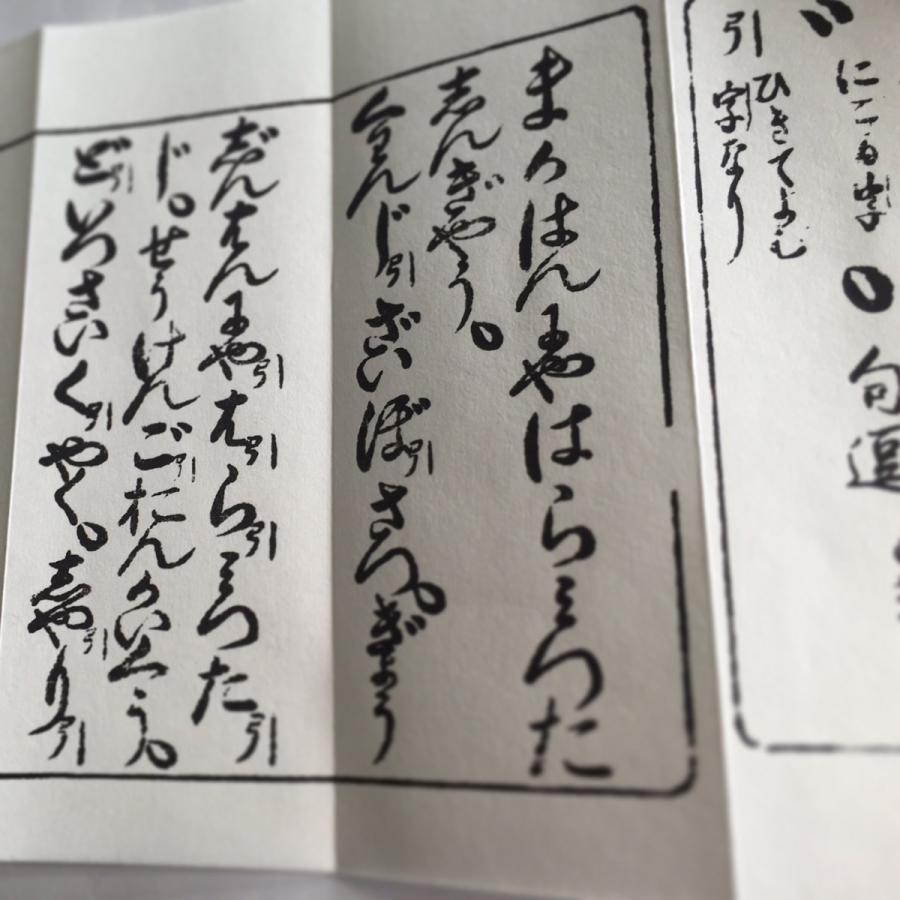 にごる字 ○ 句逗
引 ひきてよむ
字なり
まかはんにやはらみつた
しんぎやう。
くわんじ引ざいぼ引さつ。ぎよう
じんはんにや引は引ら引みつた引
じ。せうけんご引おんかいくう。
ど引いつさいく引やく。しや引り引